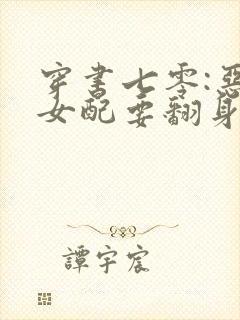 穿书七零:惡
女配要翻身
譚宇宸